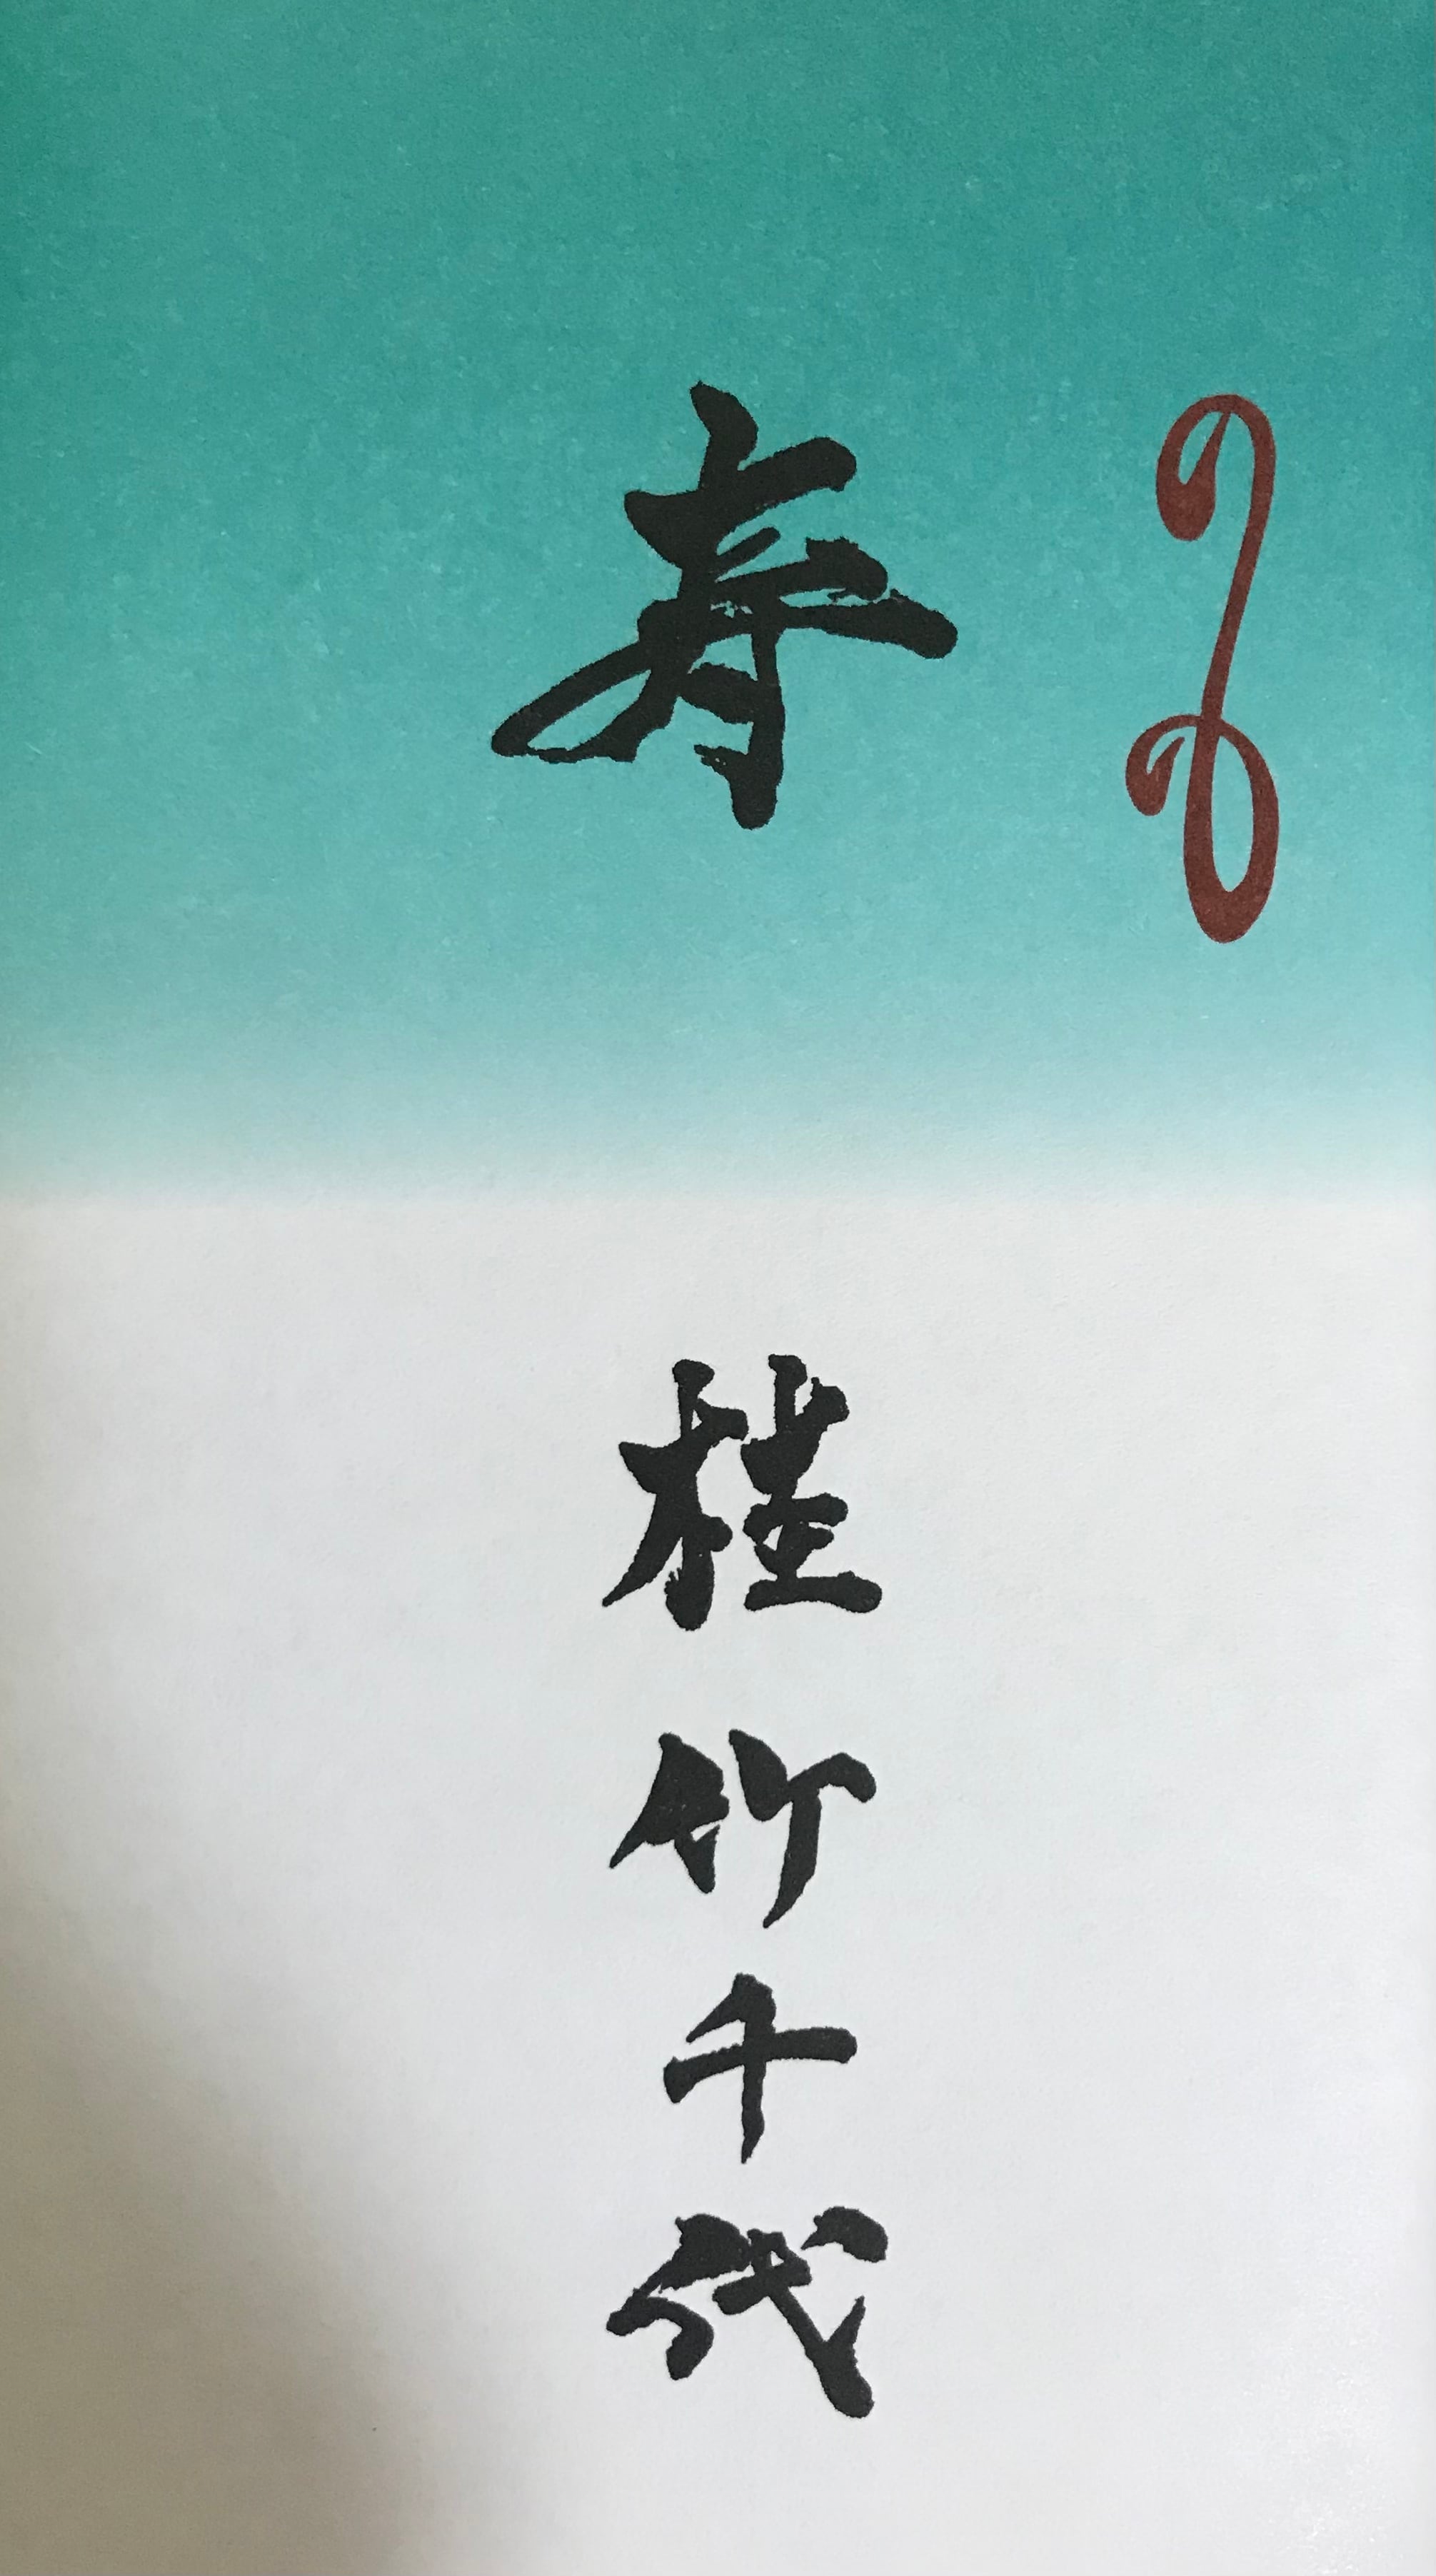 の
寿
桂竹千代